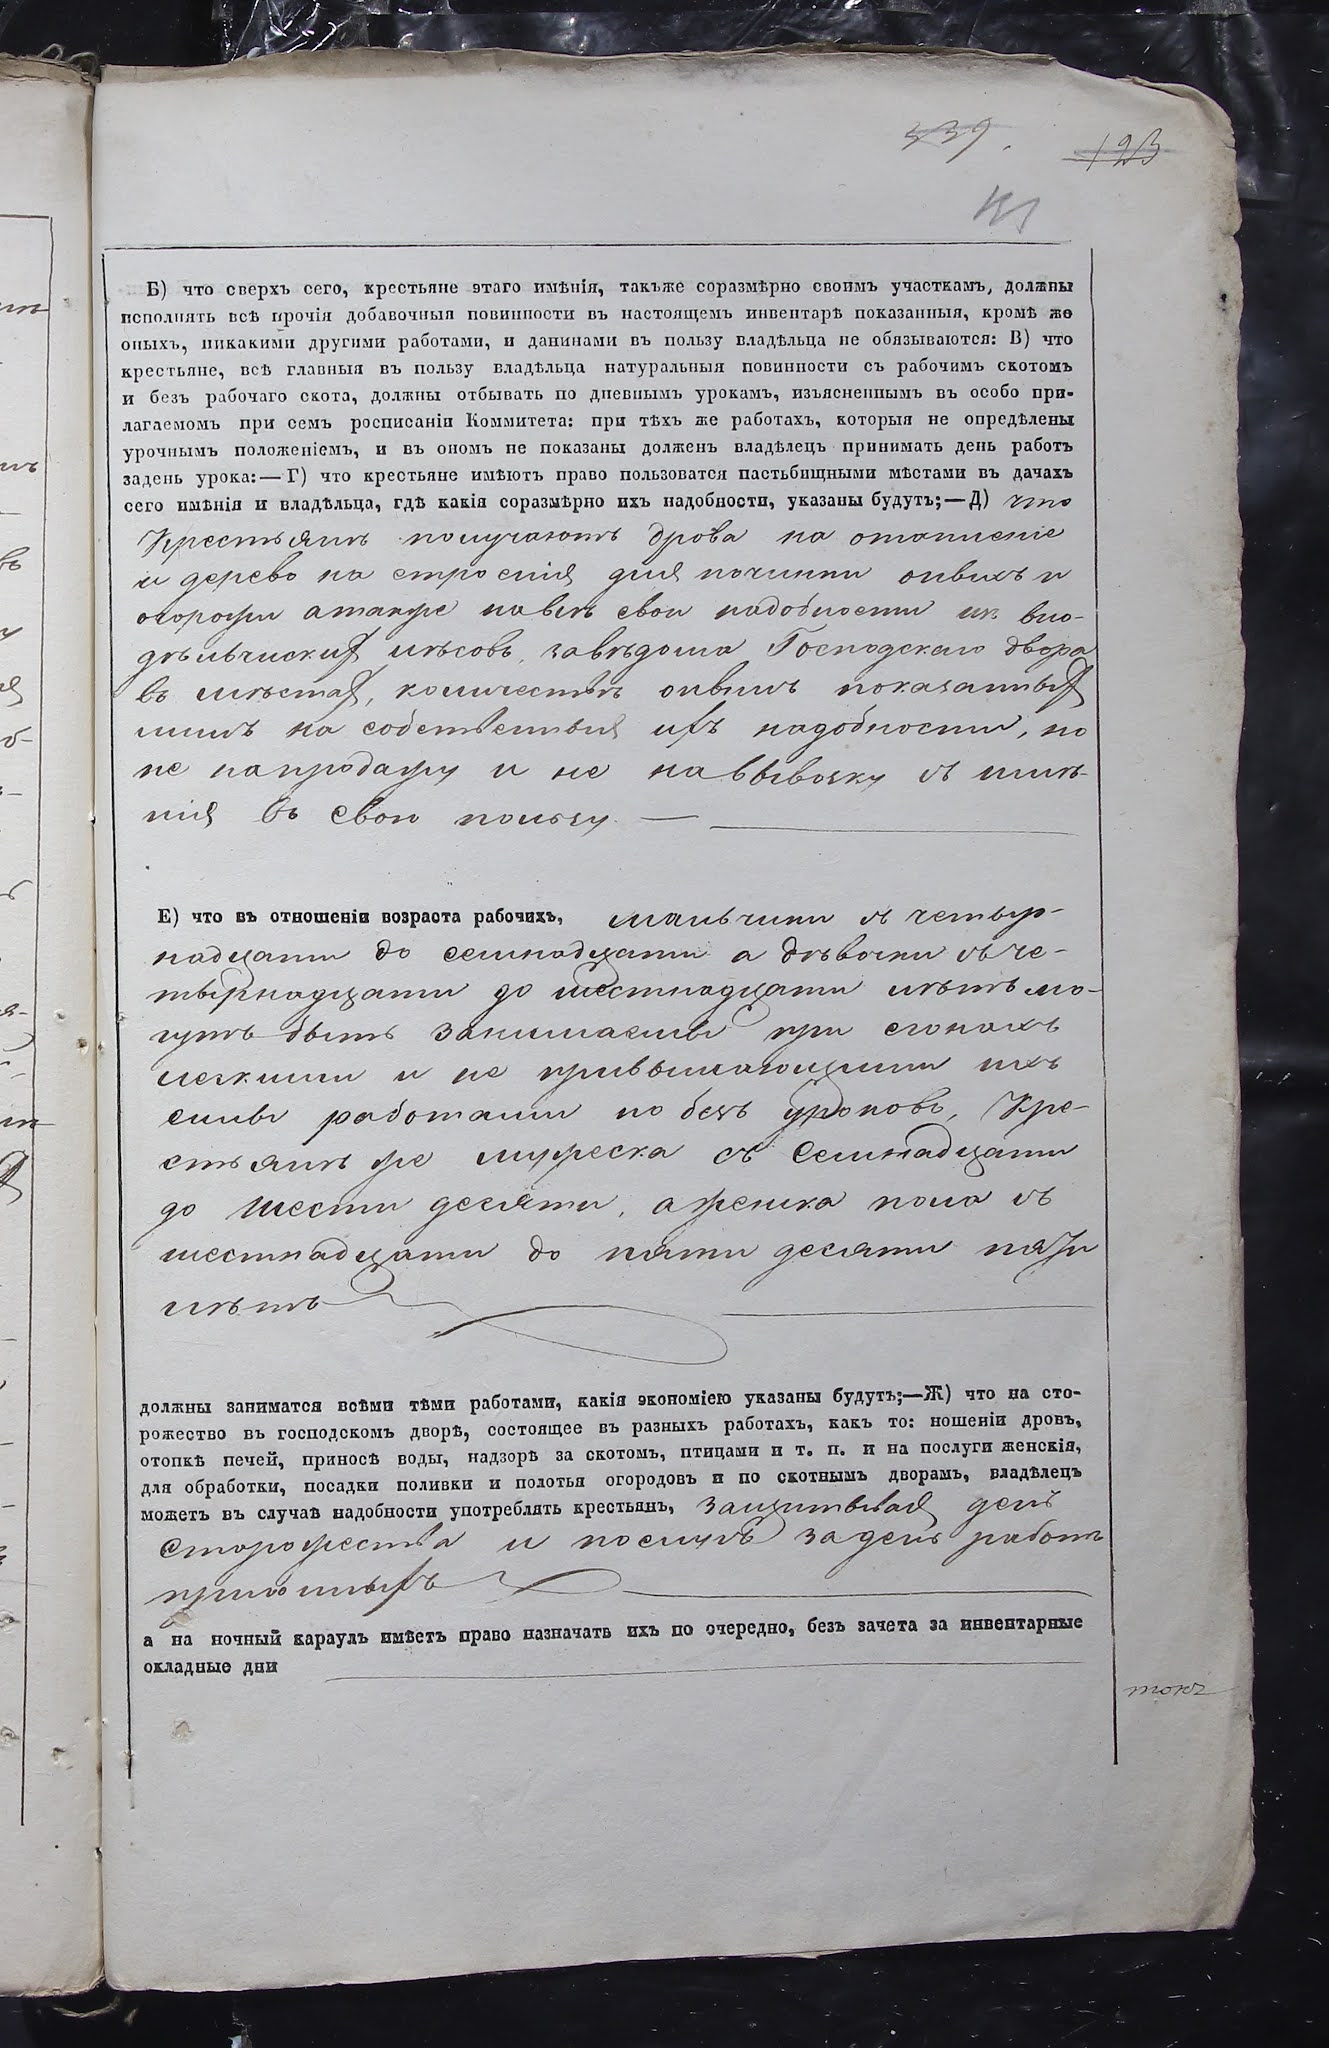 339.
123
Б) что сверхъ сего, крестьяне этаго имѣнія, такъже соразмѣрно своимъ участкамъ, должны
исполнять всѣ прочія добавочныя повинности въ настоящемъ инвентарѣ показанныя, кромѣ же
оныхъ, никакими другими работами, и данинами въ пользу владѣльца не обязываются: В) что
крестьяне, всѣ главныя въ пользу владѣльца натуральныя повинности съ рабочимъ скотомъ
и безъ рабочаго скота, должны отбывать по дневнымъ урокамъ, изъясненнымъ въ особо при-
лагаемомъ при семъ росписаніи Коммитета: при тѣхъ же работахъ, которыя не опредѣлены
урочнымъ положеніемъ, и въ ономъ не показаны долженъ владѣлецъ принимать день работъ
задень урока:—Г) что крестьяне имѣютъ право пользоватся пастьбищными мѣстами въ дачахъ
сего имѣнія и владѣльца, гдѣ какія соразмѣрно ихъ надобности, указаны будутъ;—Д) что
Крестьянѣ получаютъ дрова на отапленіе
и дерево на строенія для починки онвихъ и
огорожи атакже навсѣ свои надобности изъ вла-
дѣльческихъ лѣсовъ, завѣдома Господскаго двора
въ мѣстахъ, количествѣ онвимъ показанныхъ
лишъ на собственныя ихъ надобности, но
не напродажу и не навывозку съ имѣ-
нія въ свою пользу —
Е) что въ отношеніи возраста рабочихъ, мальчики съ четыр-
надцати до семнадцати а дѣвочки съ че-
тырнадцати до шестнадцати лѣтъ мо-
гутъ быть занимаемы при економъ
легкими и не привышающими ихъ
силы работами но безъ уроковъ, Кре-
стьянѣ же мужеска съ Семнадцати
до шести десяти, аженска пола съ
шестнадцати до пяти десяти пяти
лѣтъ
должны заниматся всѣми тѣми работами, какія экономіею указаны будутъ;—Ж) что на сто-
рожество въ господскомъ дворѣ, состоящее въ разныхъ работахъ, какъ то: ношеніи дровъ,
отопкѣ печей, приносѣ воды, надзорѣ за скотомъ, птицами и т. п. и на послуги женскія,
для обработки, посадки поливки и полотья огородовъ и по скотнымъ дворамъ, владѣлецъ
можетъ въ случаѣ надобности употреблять крестьянъ, защитывая день
Сторожества и послугъ задень работъ
а на ночный караулъ имѣетъ право назначать ихъ по очередно, безъ зачета за инвентарные
окладные дни